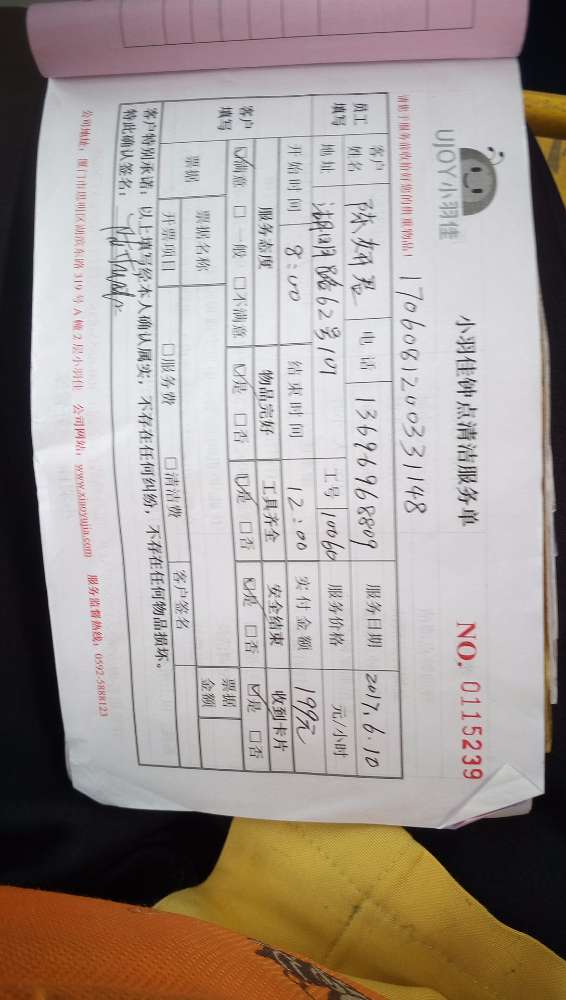 UJOY小羽佳
小羽佳钟点清洁服务单
NO. 0115239
请您于服务前收拾好您的贵重物品！
170608120033148
员工填写
客户姓名 陈妍君 电话 13696968809 服务日期 2017.6.10
地址 湖明路62号 工号 10060 服务价格 元/小时
开始时间 8:00 结束时间 12:00 实付金额 199元
客户填写
服务态度 物品完好 工具齐全 安全结束 收到卡片
☑满意 □一般 □不满意 ☑是 □否 ☑是 □否 ☑是 □否 ☑是 □否
票据 票据名称 票据金额
开票项目 □服务费 □清洁费 客户签名
客户特别承诺：以上填写经本人确认属实，不存在任何纠纷，不存在任何物品损坏。
特此确认签名：
公司地址：厦门市思明区湖滨东路319号A幢2层小羽佳 公司网站：www.xiaoyujia.com 服务监督热线：0592-5888123